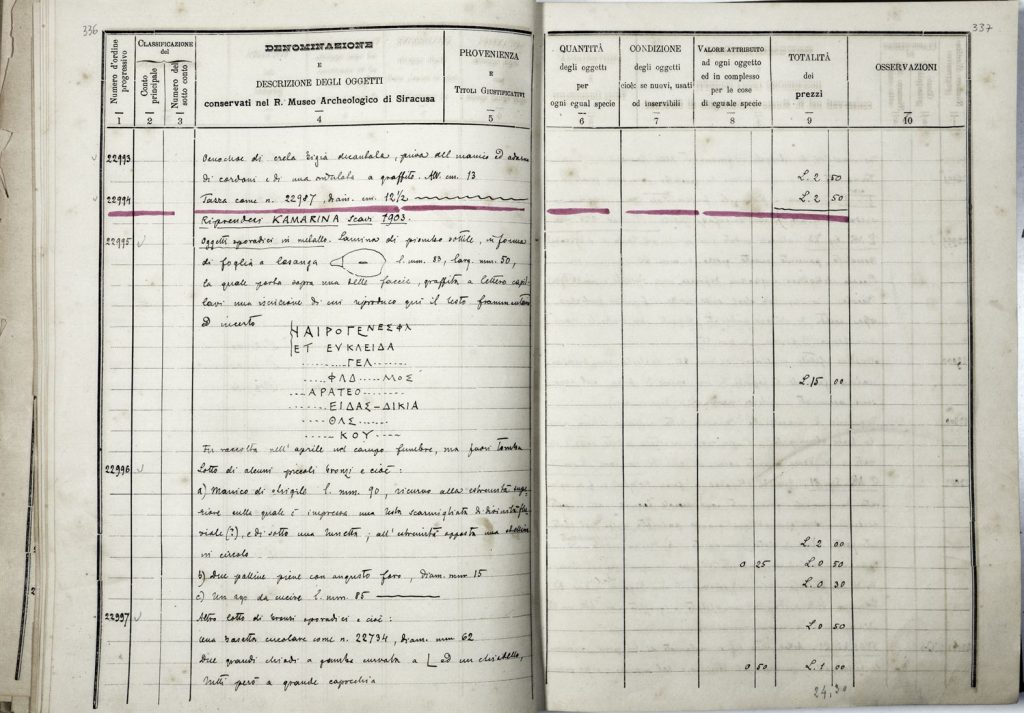 336
337
Numero d'ordine progressivo
CLASSIFICAZIONE del
Conto principale
Numero del sotto conto
DENOMINAZIONE
E
DESCRIZIONE DEGLI OGGETTI
conservati nel R. Museo Archeologico di Siracusa
PROVENIENZA
E
TITOLI GIUSTIFICATIVI
QUANTITÀ
degli oggetti
per
ogni egual specie
CONDIZIONE
degli oggetti
cioè: se nuovi, usati
od inservibili
VALORE ATTRIBUITO
ad ogni oggetto
ed in complesso
per le cose
di eguale specie
TOTALITÀ
dei
prezzi
OSSERVAZIONI
1 2 3 4 5 6 7 8 9 10
22993 Oenochoe di creta bigia priva del manico ed
di cordoni e di una ondulata a graffito. Alt. cm. 13 L. 2 50
22994 Tazza come n. 22987, diam. cm. 12½ L. 2 50
Riprendesi KAMARINA Scavi 1903.
22995 Oggetti sporadici in metallo. Lamina di piombo sottile, in forma
di foglia a losanga l. mm. 83, larg. mm. 50,
la quale porta sopra una delle faccie, graffita a lettere
una iscrizione di cui riproduco qui il testo
ed incerto
ΗΑΙΡΟΓΕΝΕΣΦΛ
ΕΤ ΕΥΚΛΕΙΔΑ
........ΓΕΛ......
.....ΦΛΔ.....ΜΟΣ L. 15 00
..ΑΡΑΤΕΟ.........
.......ΕΙΔΑΣ-ΔΙΚΙΑ
.....ΘΛΣ.....
.....ΚΟΥ....
Fu raccolta nell'aprile nel campo funebre, ma fuori tomba
22996 Lotto di alcuni piccoli bronzi e cioè:
a) Manico di strigile l. mm. 90, ricurvo alla estremità
sulla quale è impressa una testa scarmigliata di divinità
(?), e di sotto una; all'estremità opposta una
in circolo L. 2 00
b) Due palline piene con angusto foro, diam. mm 15 0 25 L. 0 50
c) Un ago da cucire l. mm. 85 L. 0 30
22997 Altro lotto di bronzi sporadici e cioè:
una basetta circolare come n. 22734, diam. mm 62 L. 0 50
Due grandi chiodi a gamba curvata a L ed un chiodello,
tutti però a grande capocchia 0 50 L. 1 00
24,30